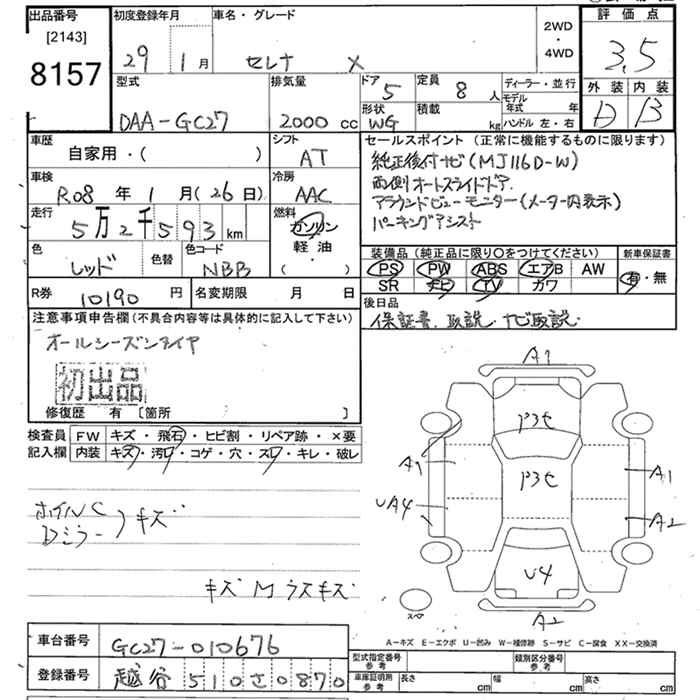 出品番号
[2143]
8157
初度登録年月
29 1月
車名・グレード
セレナ X
2WD
・
4WD
評価点
3.5
外装 内装
D B
型式
DAA-GC27
排気量
2000 cc
ドア 5
形状 WG
定員 8 人
積載 kg
ディーラー・並行
モデル年式 年
ハンドル 左・右
車歴
自家用・( )
シフト
AT
車検
R08 年 1 月 (26 日)
冷房
AAC
走行
5万2千593 km
燃料
ガソリン
軽油
・
( )
色
レッド
色替
色コード
NBB
R券
10190 円
名変期限 月 日
セールスポイント(正常に機能するものに限ります)
純正後付ナビ(MJ116D-W)
両側オートスライドドア
アラウンドビューモニター(メーター内表示)
パーキングアシスト
装備品(純正品に限り○をつけてください)
PS PW ABS エアB AW
SR ナビ TV カワ
新車保証書
有・無
後日品
保証書、取説、ナビ取説
注意事項申告欄(不具合内容等は具体的に記入して下さい)
オールシーズンタイヤ
初出品
修復歴 有 [箇所 ]
検査員記入欄
FW キズ・飛石・ヒビ割・リペア跡・×要
内装 キズ・汚れ・コゲ・穴・スレ・キレ・破レ
ホイルC
Dミラー
)キズ
キズMウスキズ
A1
A1
UA4
A1
A2
U4
A2
スペア
A-キズ E-エクボ U-凹み W-補修跡 S-サビ C-腐食 XX-交換済
車台番号
GC27-010676
登録番号
越谷 510さ0870
型式指定番号
参考
類別区分番号
参考
車庫証明用
参考
長さ cm
幅 cm
高さ cm